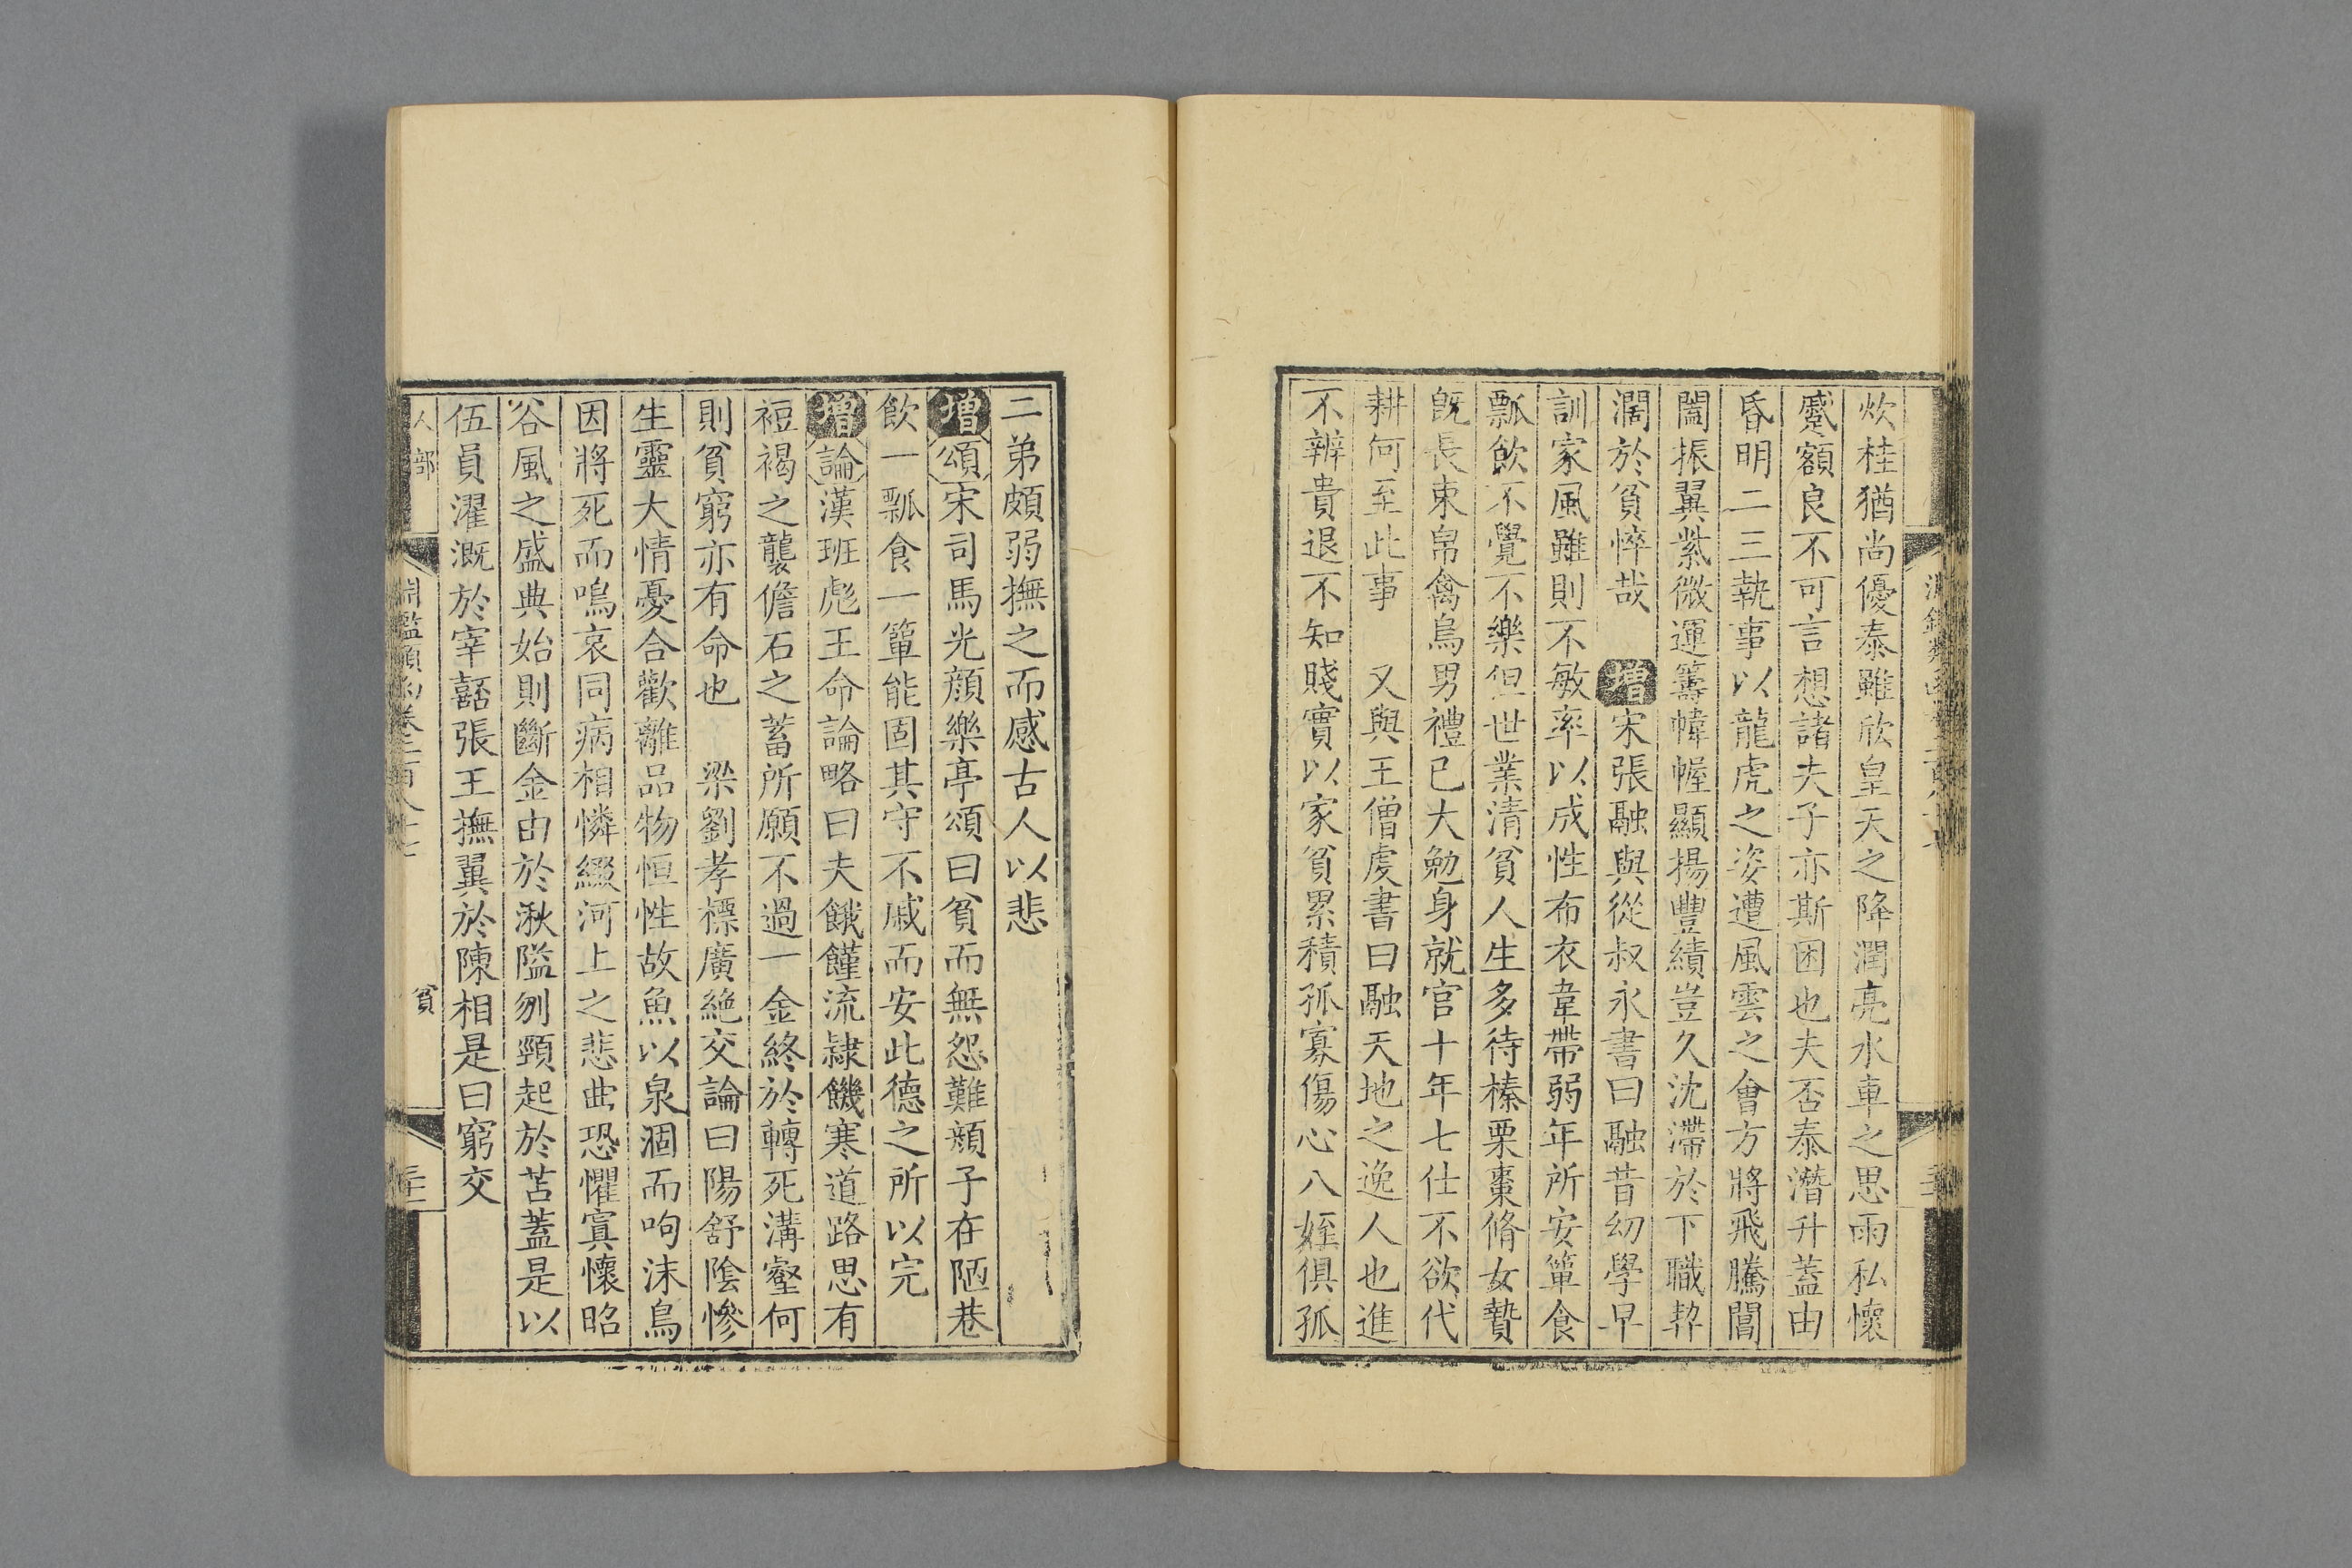 炊桂猶尚優泰雖欣皇天之降潤亮水車之思雨私懷
蹙額良不可言想諸夫子亦斯困也夫否泰潛升蓋由
昏明二三執事以龍虎之姿遭風雲之會方將飛騰閶
闔振翼紫微運籌幃幄顯揚豐績豈久沈滯於下職契
濶於貧悴哉 增宋張融與從叔永書曰融昔幼學早
訓家風雖則不敏率以成性布衣韋帶弱年所安簞食
瓢飲不覺不樂但世業清貧人生多待榛栗棗脩女贄
旣長束帛禽鳥男禮已大勉身就官十年七仕不欲代
耕何至此事 又與王僧虔書曰融天地之逸人也進
不辨貴退不知賤實以家貧累積孤寡傷心八姪俱孤
二弟頗弱撫之而感古人以悲
增頌宋司馬光顔樂亭頌曰貧而無怨難顔子在陋巷
飲一瓢食一簞能固其守不戚而安此德之所以完
增論漢班彪王命論略曰夫餓饉流隷饑寒道路思有
裋褐之襲儋石之蓄所願不過一金終於轉死溝壑何
則貧窮亦有命也 梁劉孝標廣絶交論曰陽舒陰慘
生靈大情憂合歡離品物恒性故魚以泉涸而呴沫鳥
因將死而鳴哀同病相憐綴河上之悲曲恐懼寘懷昭
谷風之盛典始則斷金由於湫隘刎頸起於苫蓋是以
伍員濯溉於宰嚭張王撫翼於陳相是曰窮交
人部
淵鑑類函卷二百八十七
貧